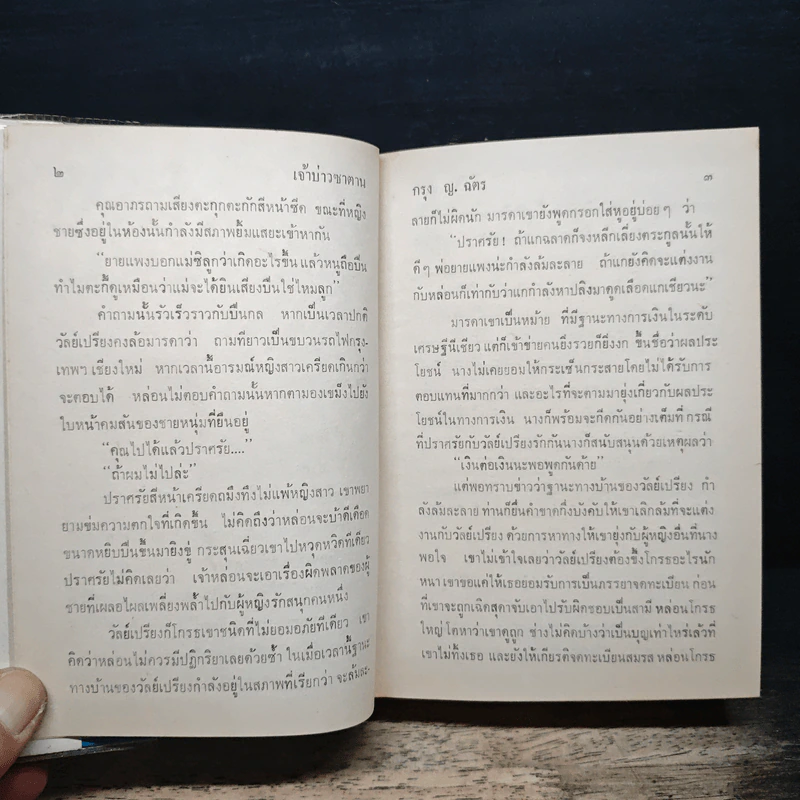 ๒
เจ้าบ่าวซาตาน
คุณอาภรถามเสียงตะกุกตะกักสีหน้าซีด ขณะที่หญิง
ชายซึ่งอยู่ในห้องนั้นกำลังมีสภาพยิ้มแสยะเข้าหากัน
"ยายแพงบอกแม่ซิลูกว่าเกิดอะไรขึ้น แล้วหนูถือปืน
ทำไมตะกี้ดูเหมือนว่าแม่จะได้ยินเสียงปืนใช่ไหมลูก"
คำถามนั้นรัวเร็วราวกับปืนกล หากเป็นเวลาปกติ
วัลย์เปรียงคงล้อมารดาว่า ถามที่ยาวเป็นขบวนรถไฟกรุง-
เทพฯ เชียงใหม่ หากเวลานี้อารมณ์หญิงสาวเครียดเกินกว่า
จะตอบได้ หล่อนไม่ตอบคำถามนั้นหากตามองเขม็งไปยัง
ใบหน้าคมสันของชายหนุ่มที่ยืนอยู่
"คุณไปได้แล้วปราศรัย...."
"ถ้าผมไม่ไปล่ะ"
ปราศรัยสีหน้าเครียดถมึงทึงไม่แพ้หญิงสาว เขาพยา
ยามข่มความตกใจที่เกิดขึ้น ไม่คิดถึงว่าหล่อนจะบ้าดีเดือด
ขนาดหยิบปืนขึ้นมายิงขู่ กระสุนเฉี่ยวเขาไปหวุดหวิดทีเดียว
ปราศรัยไม่คิดเลยว่า เจ้าหล่อนจะเอาเรื่องผิดพลาดของผู้
ชายที่เผลอไผลเพลี่ยงพล้ำไปกับผู้หญิงรักสนุกคนหนึ่ง
วัลย์เปรียงก็โกรธเขาชนิดที่ไม่ยอมอภัยทีเดียว เขา
คิดว่าหล่อนไม่ควรมีปฏิกริยาเลยด้วยซ้ำ ในเมื่อเวลานี้ฐานะ
ทางบ้านของวัลย์เปรียงกำลังอยู่ในสภาพที่เรียกว่า จะล้มละ-
กรุง ญ. ฉัตร
๓
ลายก็ไม่ผิดนัก มารดาเขายังพูดกรอกใส่หูอยู่บ่อยๆ ว่า
"ปราศรัย! ถ้าแกฉลาดก็จงหลีกเลี่ยงตระกูลนั้นให้
ดีๆ พ่อยายแพงน่ะกำลังล้มละลาย ถ้าแกยังคิดจะแต่งงาน
กับหล่อนก็เท่ากับว่าแกกำลังหาปลิงมาดูดเลือดแกเชียวนะ"
มารดาเขาเป็นหม้าย ที่มีฐานะทางการเงินในระดับ
เศรษฐีนีเชียว แต่ก็เข้าข่ายคนยิ่งรวยก็ยิ่งงก ขึ้นชื่อว่าผลประ
โยชน์ นางไม่เคยยอมให้กระเซ็นกระสายโดยไม่ได้รับการ
ตอบแทนที่มากกว่า และอะไรที่จะตามมายุ่งเกี่ยวกับผลประ
โยชน์ในทางการเงิน นางก็พร้อมจะกีดกันอย่างเต็มที่ กรณี
ที่ปราศรัยกับวัลย์เปรียงรักกันนางก็สนับสนุนด้วยเหตุผลว่า
"เงินต่อเงินนะพอพูดกันด้าย"
แต่พอทราบข่าวว่าฐานะทางบ้านของวัลย์เปรียง กำ
ลังล้มละลาย ท่านก็ยื่นคำขาดกึ่งบังคับให้เขาเลิกล้มที่จะแต่ง
งานกับวัลย์เปรียง ด้วยการหาทางให้เขายุ่งกับผู้หญิงอื่นที่นาง
พอใจ เขาไม่เข้าใจเลยว่าวัลย์เปรียงต้องขึ้งโกรธอะไรนัก
หนา เขาขอแค่ให้เธอยอมรับการเป็นภรรยาจดทะเบียน ก่อน
ที่เขาจะถูกเฉิดสุดาจับเอาไปรับผิดชอบเป็นสามี หล่อนโกรธ
ใหญ่ โตหาว่าเขาดูถูก ช่างไม่คิดบ้างว่าเป็นบุญเท่าไหร่แล้วที่
เขาไม่ทิ้งเธอ และยังให้เกียรติจดทะเบียนสมรส หล่อนโกรธ